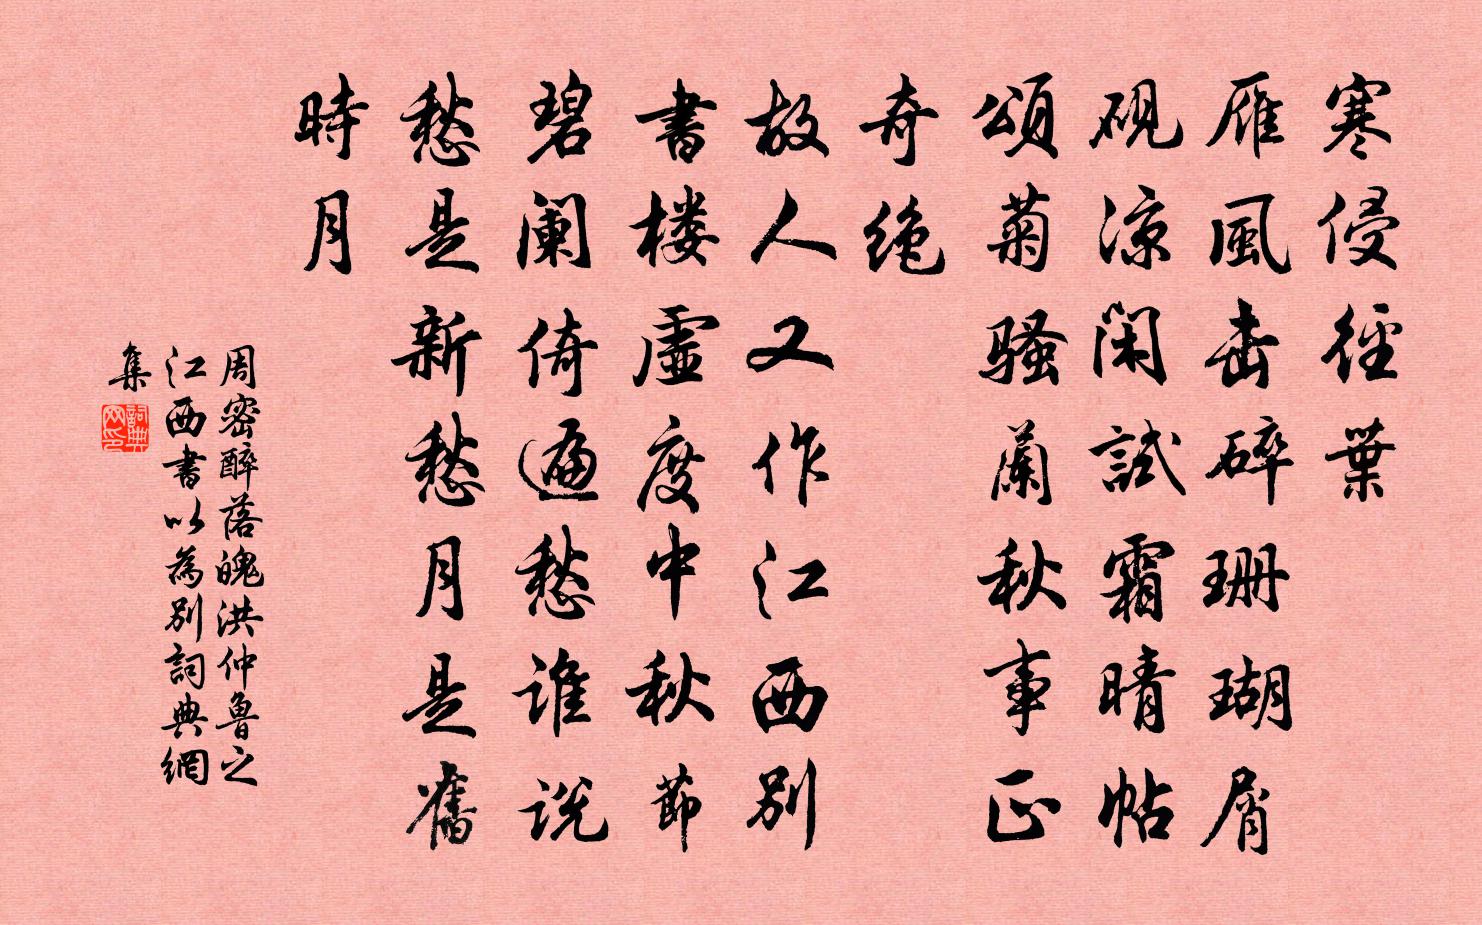 寒侵徑葉
雁風击碎珊瑚屑
硯涼閑試霜晴帖
頌菊騷蘭秋事正
奇絶
故人又作江西別
書楼虚度中秋節
碧阑倚遍愁誰説
愁是新愁月是舊
時月
周密醉落魄洪仲魯之
江西書以為別詞典網
集
詞典
网印